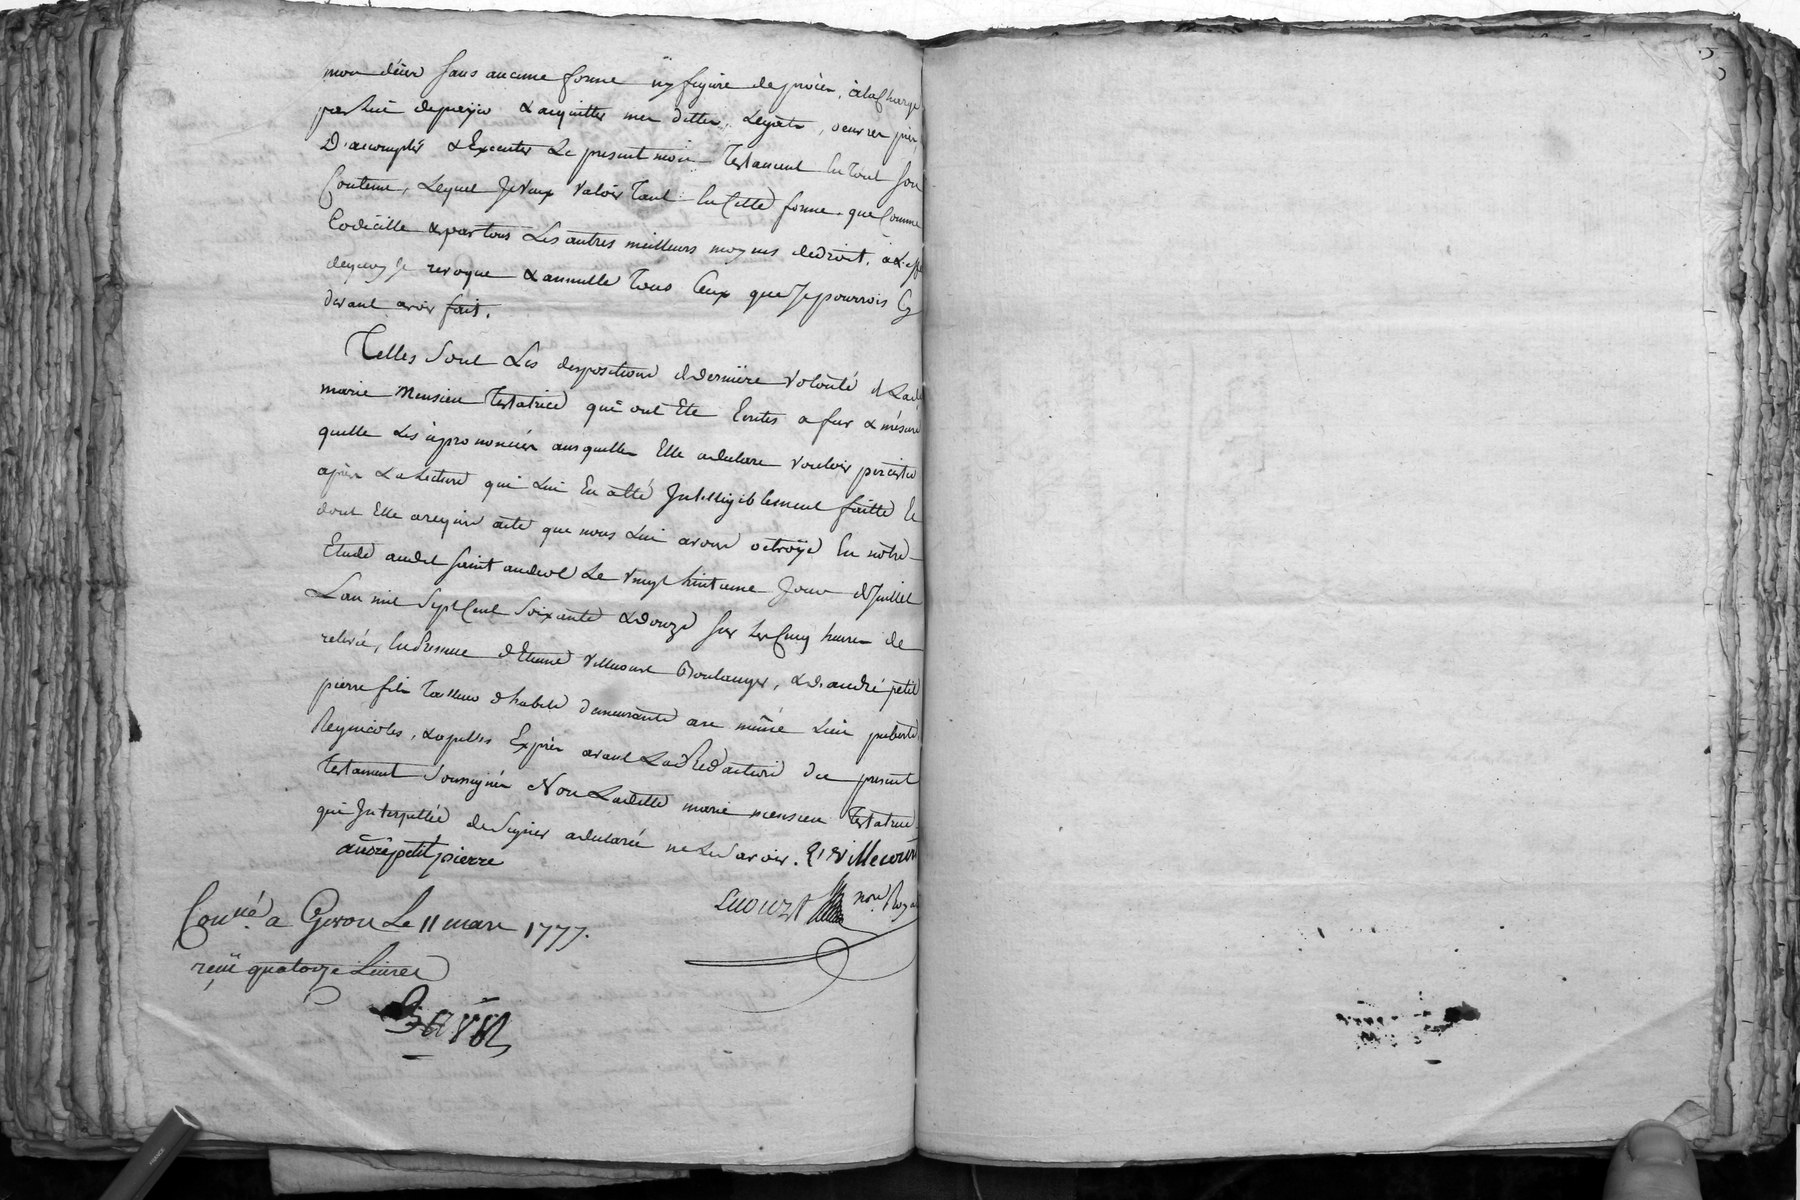 mon décès sans aucune forme ny figure de procès, à la charge
par lui de payer & acquitter mes dettes, Legats, œuvres pies,
D'accomplir & Executer Le present mon Testament En tout son
Contenu, Lequel Je veux valoir Tant En Cette forme que Comme
Codicille & par tous Les autres meilleurs moyens de droit, à l'effet
dequoy Je revoque & annulle Tous Ceux que Je pourrois Cy
devant avoir fait.
Telles Sont Les dispositions & derniere volonté de Lad.
marie Monsieu Testatrice qui ont Eté Ecrites a fur & mésure
quelle Les à prononcées ausquelles Elle a declaré vouloir percister
après La Lecture qui Lui En a été Intelligiblement faitte &
dont Elle a requis acte que nous Lui avons octroÿé En nôtre
Etude audit Saint andeol Le vingt huitieme Jour de Juillet
L'an mil Sept Cent Soixante & douze Sur Les Cinq heures de
relevée, En Presence d'Etienne villecourt Boulanger, & d'andré petit
pierre fils Tailleur d'habits demeurants au même Lieu
Regnicoles, & apellés Exprès avant La Redaction du present
Testament Soussignés Non Ladite marie monsieu Testatrice
qui Interpellée de Signer a declaré ne Le Savoir. E villecourt
andre petit pierre
not. Royal
Con.né a Le 11 mars 1777.
reçu quatorze Livres